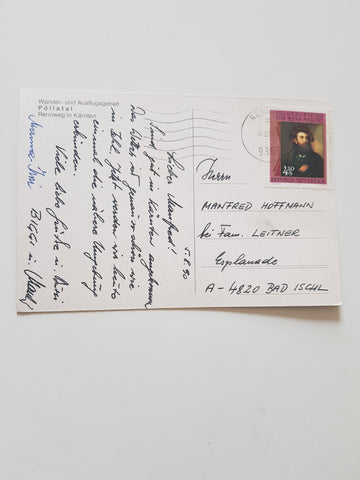 Wander- und Ausflugsgebiet
Pöllatal
Rennweg in Kärnten
5.8.90
Lieber Manfred!
Sind gut in Kärnten angekommen
Das Wetter ist genauso schön wie
in Ischl. Jetzt werden wir heute
einmal die nähere Umgebung
erkunden.
Viele liebe Grüße u. Bussi
Biggi u.
Herrn
MANFRED HOFFMANN
bei Fam. LEITNER
Esplanade
A-4820 BAD ISCHL
REPUBLIK ÖSTERREICH